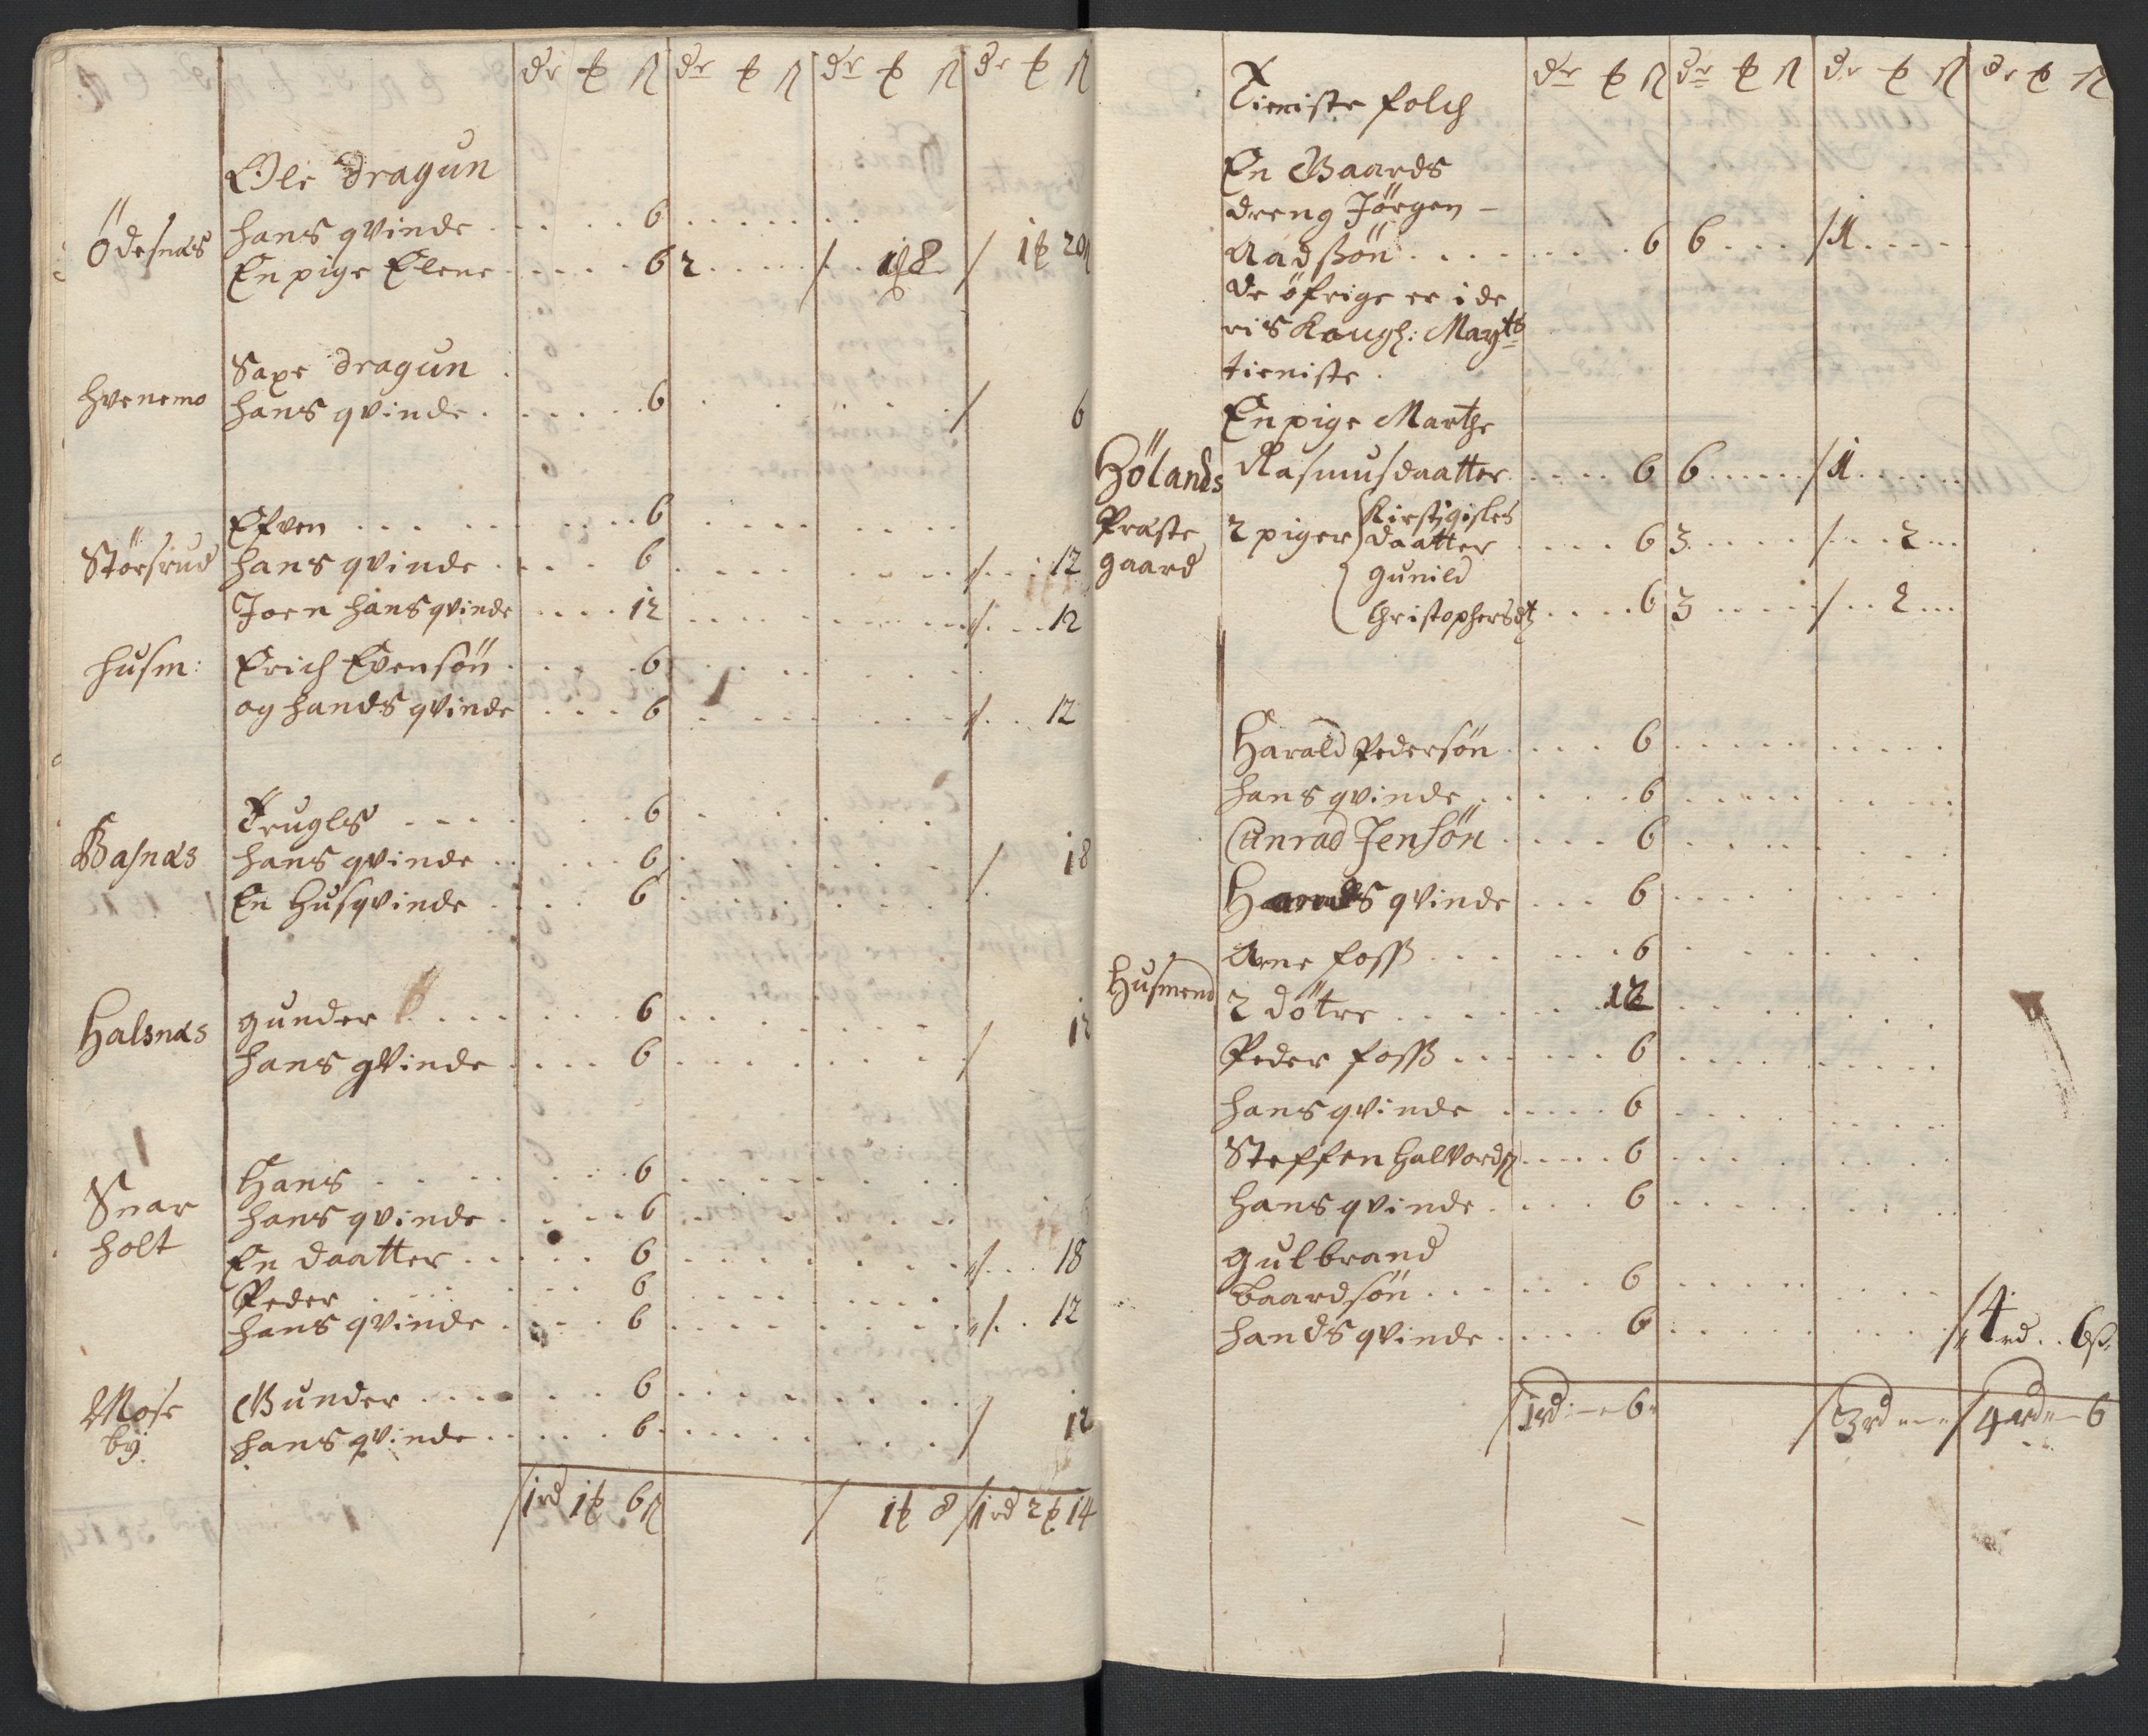 dr ₺ ß dr ₺ ß dr ₺ ß dr ₺ ß
Ole dragun
Ödesnæs hans qvinde . . . . 6 . . . . . .
En pige Elene . . . . . 6 2 . . . . . / . . 1₺ 8 / 1₺ 20ß
Saxe dragun
hvenemo hans qvinde . . . . . . 6 . . . . / 6
Efven . . . . . . . . . 6 . . . . . . .
Störsrud hans qvinde . . . . 6 . . . . . . . . /. . . 12
Joen hans qvinde . . . . 12 . . . . . . . . /. . . 12
husm: Erich Evensön . . . . . 6 . . . . . .
og hands qvinde . . . . 6 . . . . . . . . /. . . 12
Trugls . . . . . . . 6 . . . . . .
Basnæs hans qvinde . . . . . 6 . . . . . . / 18
En Husqvinde . . . . 6 . . . . . .
Halsnæs gunder . . . . . . . 6 . . . . . .
hans qvinde . . . . 6 . . . . . . . / 12
Hans . . . . . . . 6 . . . . . . .
Snar hans qvinde . . . . . 6 . . . . . . .
holt En daatter . . . . . 6 . . . . . . . . /. . . 18
Peder . . . . . . . 6 . . . . . . .
hans qvinde . . . . . 6 . . . . . . . . /. . 12
Mose Gunder . . . . . . 6 . . . . . . . .
by. hans qvinde . . . . . 6 . . . . . . . . / 12
/1rd 1₺ 6ß / 1₺ 8 /1rd 2₺ 14
dr ₺ ß dr ₺ ß dr ₺ ß dr ₺ ß
Tieniste folch
En Gaards
dreng Jörgen –
Aadßön . . . . . . . . 6 6 . . . /1 . . . . .
de öfrige er i de
ris Kongl: Mayts
tieniste .
En pige Marthe
Hölands Rasmusdaatter . . . . . 6 6 . . . . . /1 . . . . .
Præste 2 piger Kirstj gisles
daatter . . . . 6 3 . . . . . / . . 2 . . .
gaard gunild
Christophersdt . . . . 6 3 . . . . / . . 2 . . .
Harald Pedersön . . . . 6 . . . . . . . . .
hans qvinde . . . . . . 6 . . . . . . . . .
Conrad Jensön . . . . 6 . . . . . . . .
Hands qvinde . . . 6 . . . . . . .
Arne foss . . . . . . 6 . . . . . .
Husmend 2 döttre . . . . . . 12 . . . . . . .
Peder foss . . . . . . 6 . . . . . . . .
hans qvinde . . . . . 6 . . . . . . . .
Steffen halvordß . . . . . 6 . . . . . . .
hans qvinde . . . . 6 . . . . . . . .
gulbrand
baardsön . . . . . . 6 . . . . . . . .
hands qvinde . . . . . 6 . . . . . . . /4rd . . 6ß.
/1rd – 6 /3rd – – /4rd – 6